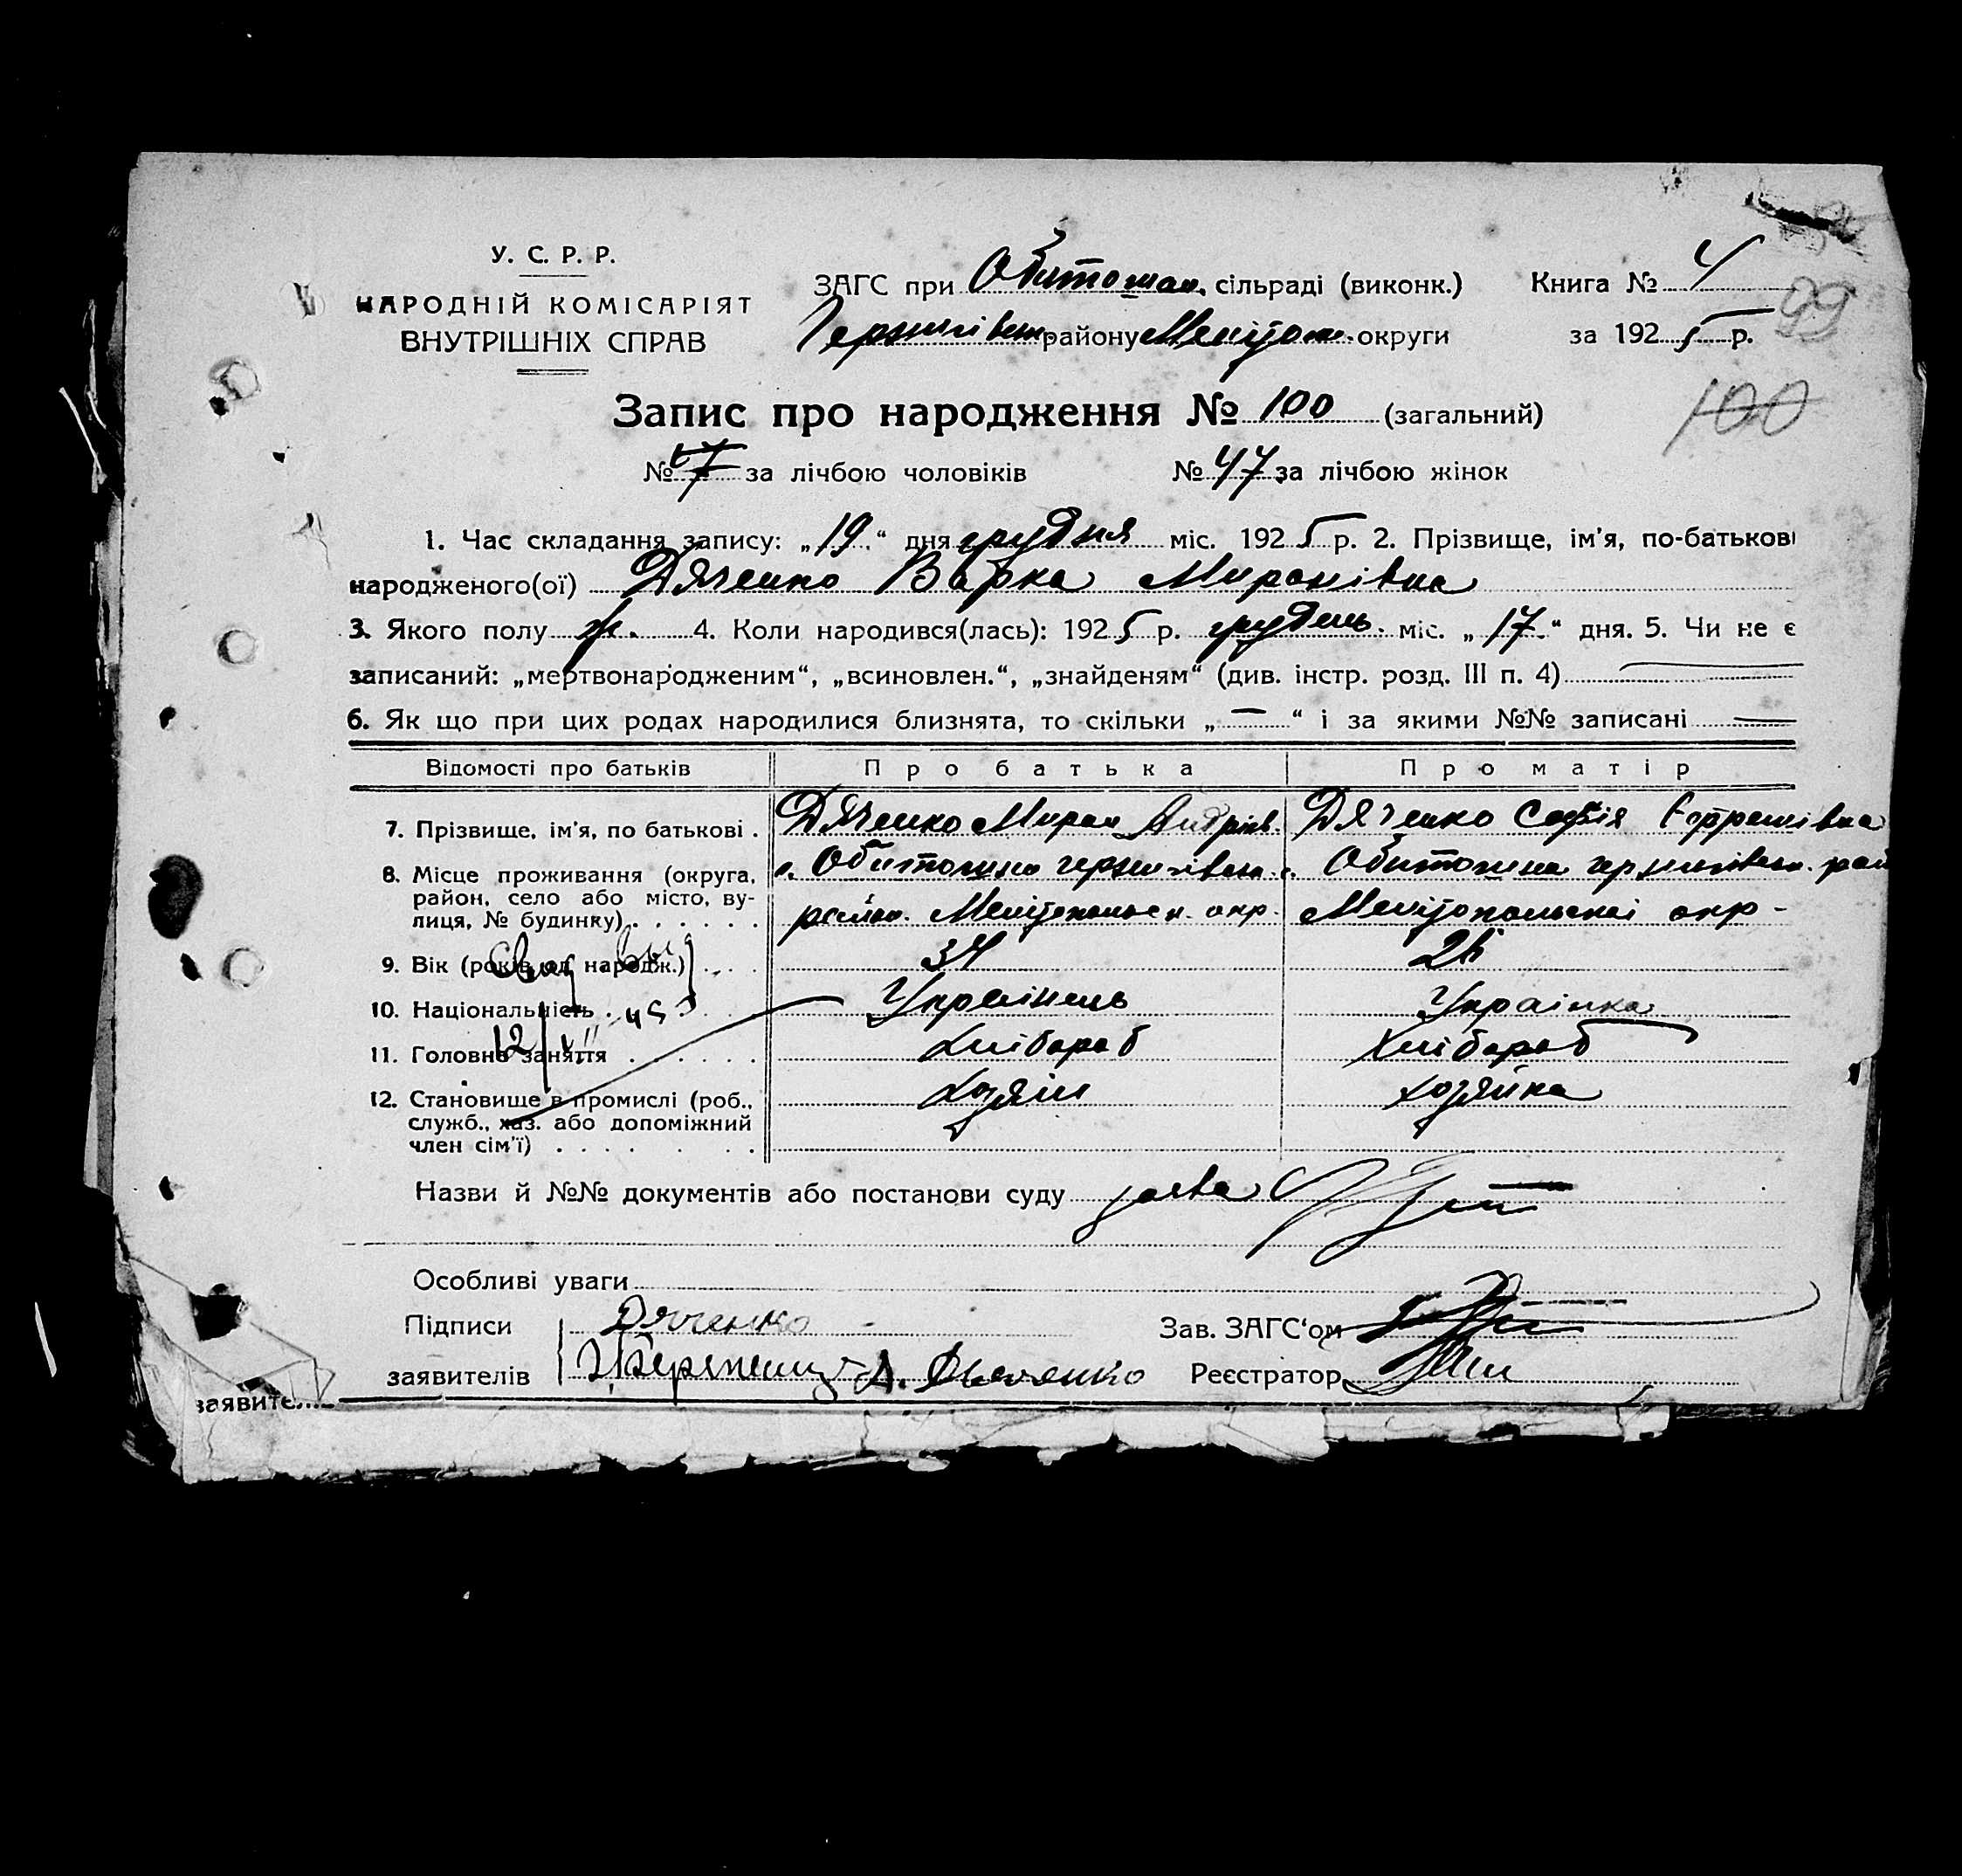 У. С. Р. Р.
НАРОДНІЙ КОМІСАРІЯТ
ВНУТРІШНІХ СПРАВ
ЗАГС при Обитошан. сільраді (виконк.)
Чернигівськ. району Мелітоп. округи
Книга № 4
за 1925 р.
99
100
Запис про народження № 100 (загальний)
№ за лічбою чоловіків № 47 за лічбою жінок
1. Час складання запису: „19“ дня грудня міс. 1925 р. 2. Прізвище, ім'я, по-батькові
народженого(ої) Дяченко Варка Миронівна
3. Якого полу ж. 4. Коли народився(лась): 1925 р. грудень. міс. „17“ дня. 5. Чи не є
записаний: „мертвонародженим“, „всиновлен.“, „знайденям“ (див. інстр. розд. III п. 4)
6. Як що при цих родах народилися близнята, то скільки „—“ і за якими №№ записані —
Відомості про батьків Про батька Про матір
7. Прізвище, ім'я, по батькові . Дяченко Мирон Андріїв. Дяченко Софія Єфремівна
8. Місце проживання (округа, с. Обиточна чернигівськ. с. Обиточна чернигівськ. рай
район, село або місто, ву-
лиця, № будинку) . . . . . . район. Мелітопольськ. окр. Мелітопольскої окр-
9. Вік (років од народж.) . . . 34 26
10. Національність . Українець Українка
11. Головне заняття . . . . . . Хлібороб Хлібороб
12. Становище в промислі (роб., Хозяїн хозяйка
служб., хаз. або допоміжний
член сім'ї) . . . .
Назви й №№ документів або постанови суду заява
Особливі уваги
Підписи Дяченко Зав. ЗАГС'ом
заявителів Д. Дьяченко Реєстратор
заявите